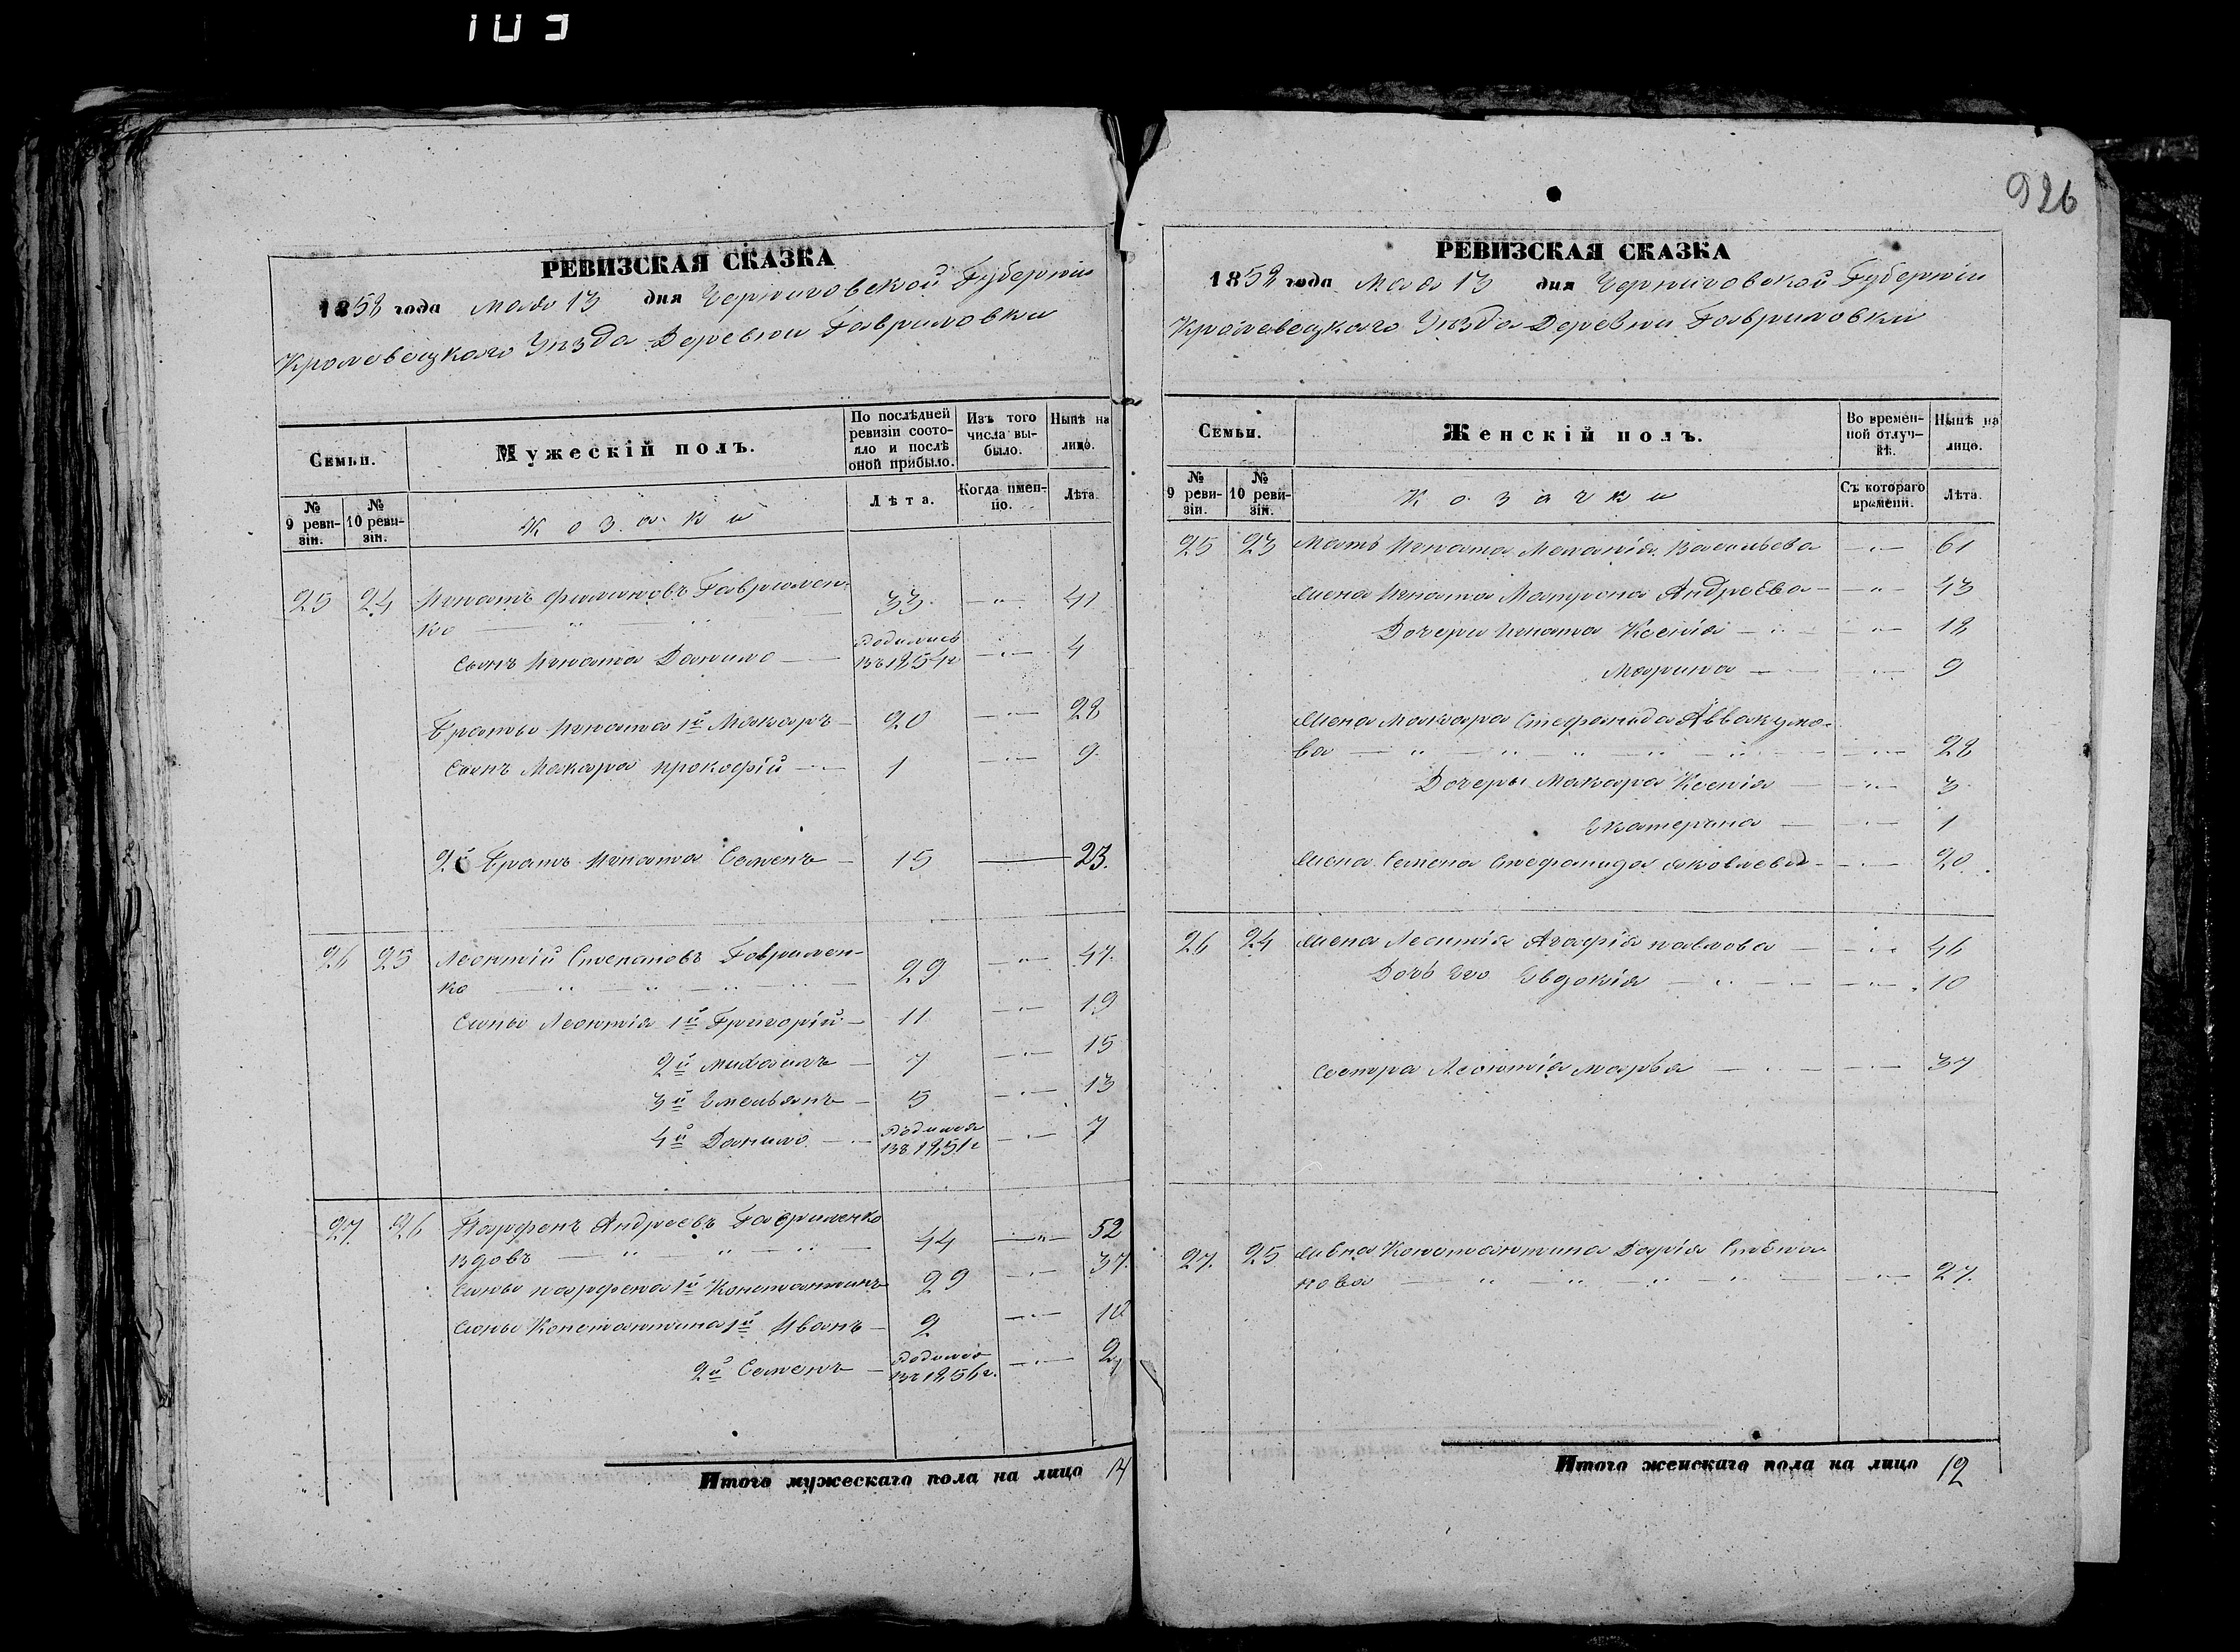 103
РЕВИЗСКАЯ СКАЗКА
1858 года Мая 13 дня Черниговской Губерніи
Кролевецкаго Уѣзда Деревни Гавриловки
Семьи.
Мужескій полъ.
По послѣдней ревизіи состояло и послѣ оной прибыло.
Изъ того числа выбыло.
Нынѣ на лицо.
№ 9 ревизіи.
№ 10 ревизіи.
Козаки
Лѣта.
Когда именно.
Лѣта.
25 24 Игнатъ Филиповъ Гаврилен-
ко — " — " — 33 — " — 41
Сынъ Игната Данило — родились въ 1854 г — " — 4
Братья Игната 1й Макаръ — 20 — " — 28
Сынъ Макара Прокофій — 1 — " — 9
2й Братъ Игната Семенъ — 15 — 23.
26 25 Леонтій Степановъ Гаврилен-
ко — " — " — 29 — " — 47.
Сыны Леонтія 1й Григорій — 11 — " — 19
2й Михаилъ — 7 — " — 15
3й Емельянъ — 5 — " — 13
4й Данило — родился въ 1851 г — " — 7
27. 26 Парфенъ Андреевъ Гавриленко
вдовъ — " — " — 44 — " — 52
Сыны Парфена 1й Константинъ 29 — " — 37.
Сыны Константина 1й Иванъ — 2 — " — 10
2й Семенъ — родился въ 1856 г. — " — 2
Итого мужескаго пола на лицо 14
926
РЕВИЗСКАЯ СКАЗКА
1858 года Мая 13 дня Черниговской Губерніи
Кролевецкаго Уѣзда Деревни Гавриловки
Семьи.
Женскій полъ.
Во временной отлучкѣ.
Нынѣ на лицо.
№ 9 ревизіи.
№ 10 ревизіи.
Козачки
Съ котораго времени.
Лѣта.
25 23 Мать Игната Меланія Васильева — " — 61
Жена Игната Матрона Андреева — " — 43
Дочери Игната Ксенія — " — 18
Марина — " — 9
Жена Макара Стефанида Аввакумо-
ва — " — " — 28
Дочеры Макара Ксенія — " — 3
Екатерина — " — 1
Жена Семена Стефанида Яковлева — " — 20
26 24 Жена Леонтія Агафія Павлова — " — 46
Дочь Его Евдокія — " — 10
Сестра Леонтія Марфа — " — 37
27. 25 Жена Константина Дарія Степа-
нова — " — " — 27.
Итого женскаго пола на лицо 12